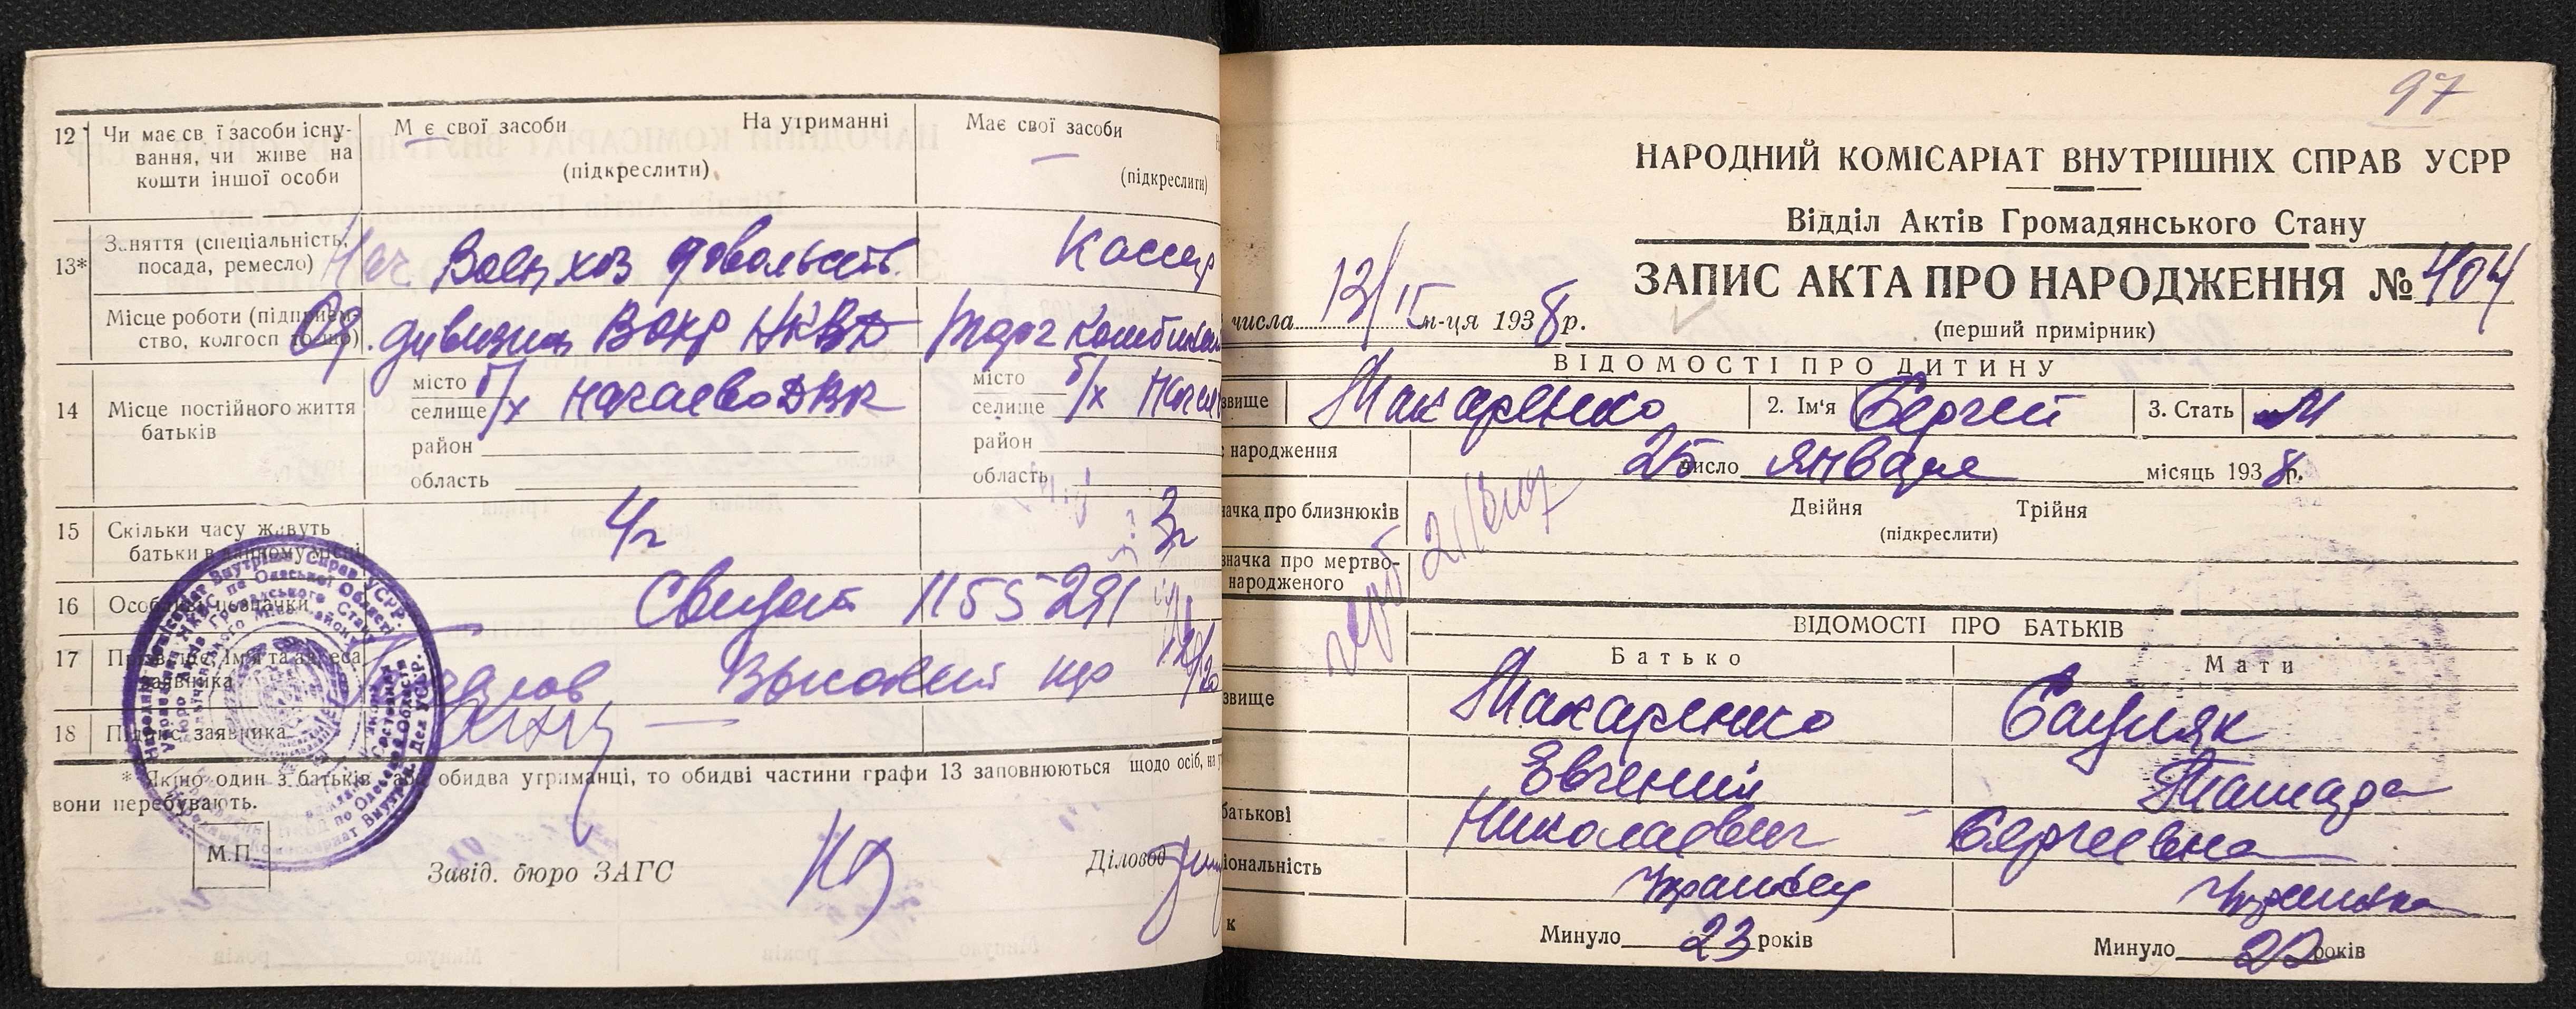 12 Чи має св ї засоби існу-
вання, чи живе на
кошти іншої особи
М є свої засоби На утриманні
(підкреслити)
Має свої засоби
(підкреслити)
13* Заняття (спеціальність,
посада, ремесло)
Нач. Воен хоз довольств.
Кассир
Місце роботи (підприєм-
ство, колгосп то-що)
дивизион Вохр НКВД
14 Місце постійного життя
батьків
місто
селище
б/х Нагаево ДВК
район
область
місто
селище
б/х
район
область
15 Скільки часу живуть
батьки в данному місці
4 г
3 г
16 Особливі позначки
Свидет 1155291
17 Прізвище, ім'я та адреса
заявника
18 Підпис заявника
* Якщо один з батьків або обидва утриманці, то обидві частини графи 13 заповнюються щодо осіб, на
вони перебувають.
М.П.
Завід. бюро ЗАГС
Діловод
97
НАРОДНИЙ КОМІСАРІАТ ВНУТРІШНІХ СПРАВ УСРР
Відділ Актів Громадянського Стану
ЗАПИС АКТА ПРО НАРОДЖЕННЯ № 404
числа 13/ІІ м-ця 1938 р.
(перший примірник)
ВІДОМОСТІ ПРО ДИТИНУ
звище Макаренко 2. Ім'я Сергей 3. Стать М
народження 25 число января місяць 1938 р.
ачка про близнюків
Двійня Трійня
(підкреслити)
значка про мертво-
народженого
ВІДОМОСТІ ПРО БАТЬКІВ
Батько Мати
звище Макаренко
Евгений Тамара
батькові Николаевич Сергеевна
іональність Украинец Украинка
к Минуло 23 років Минуло 22 років